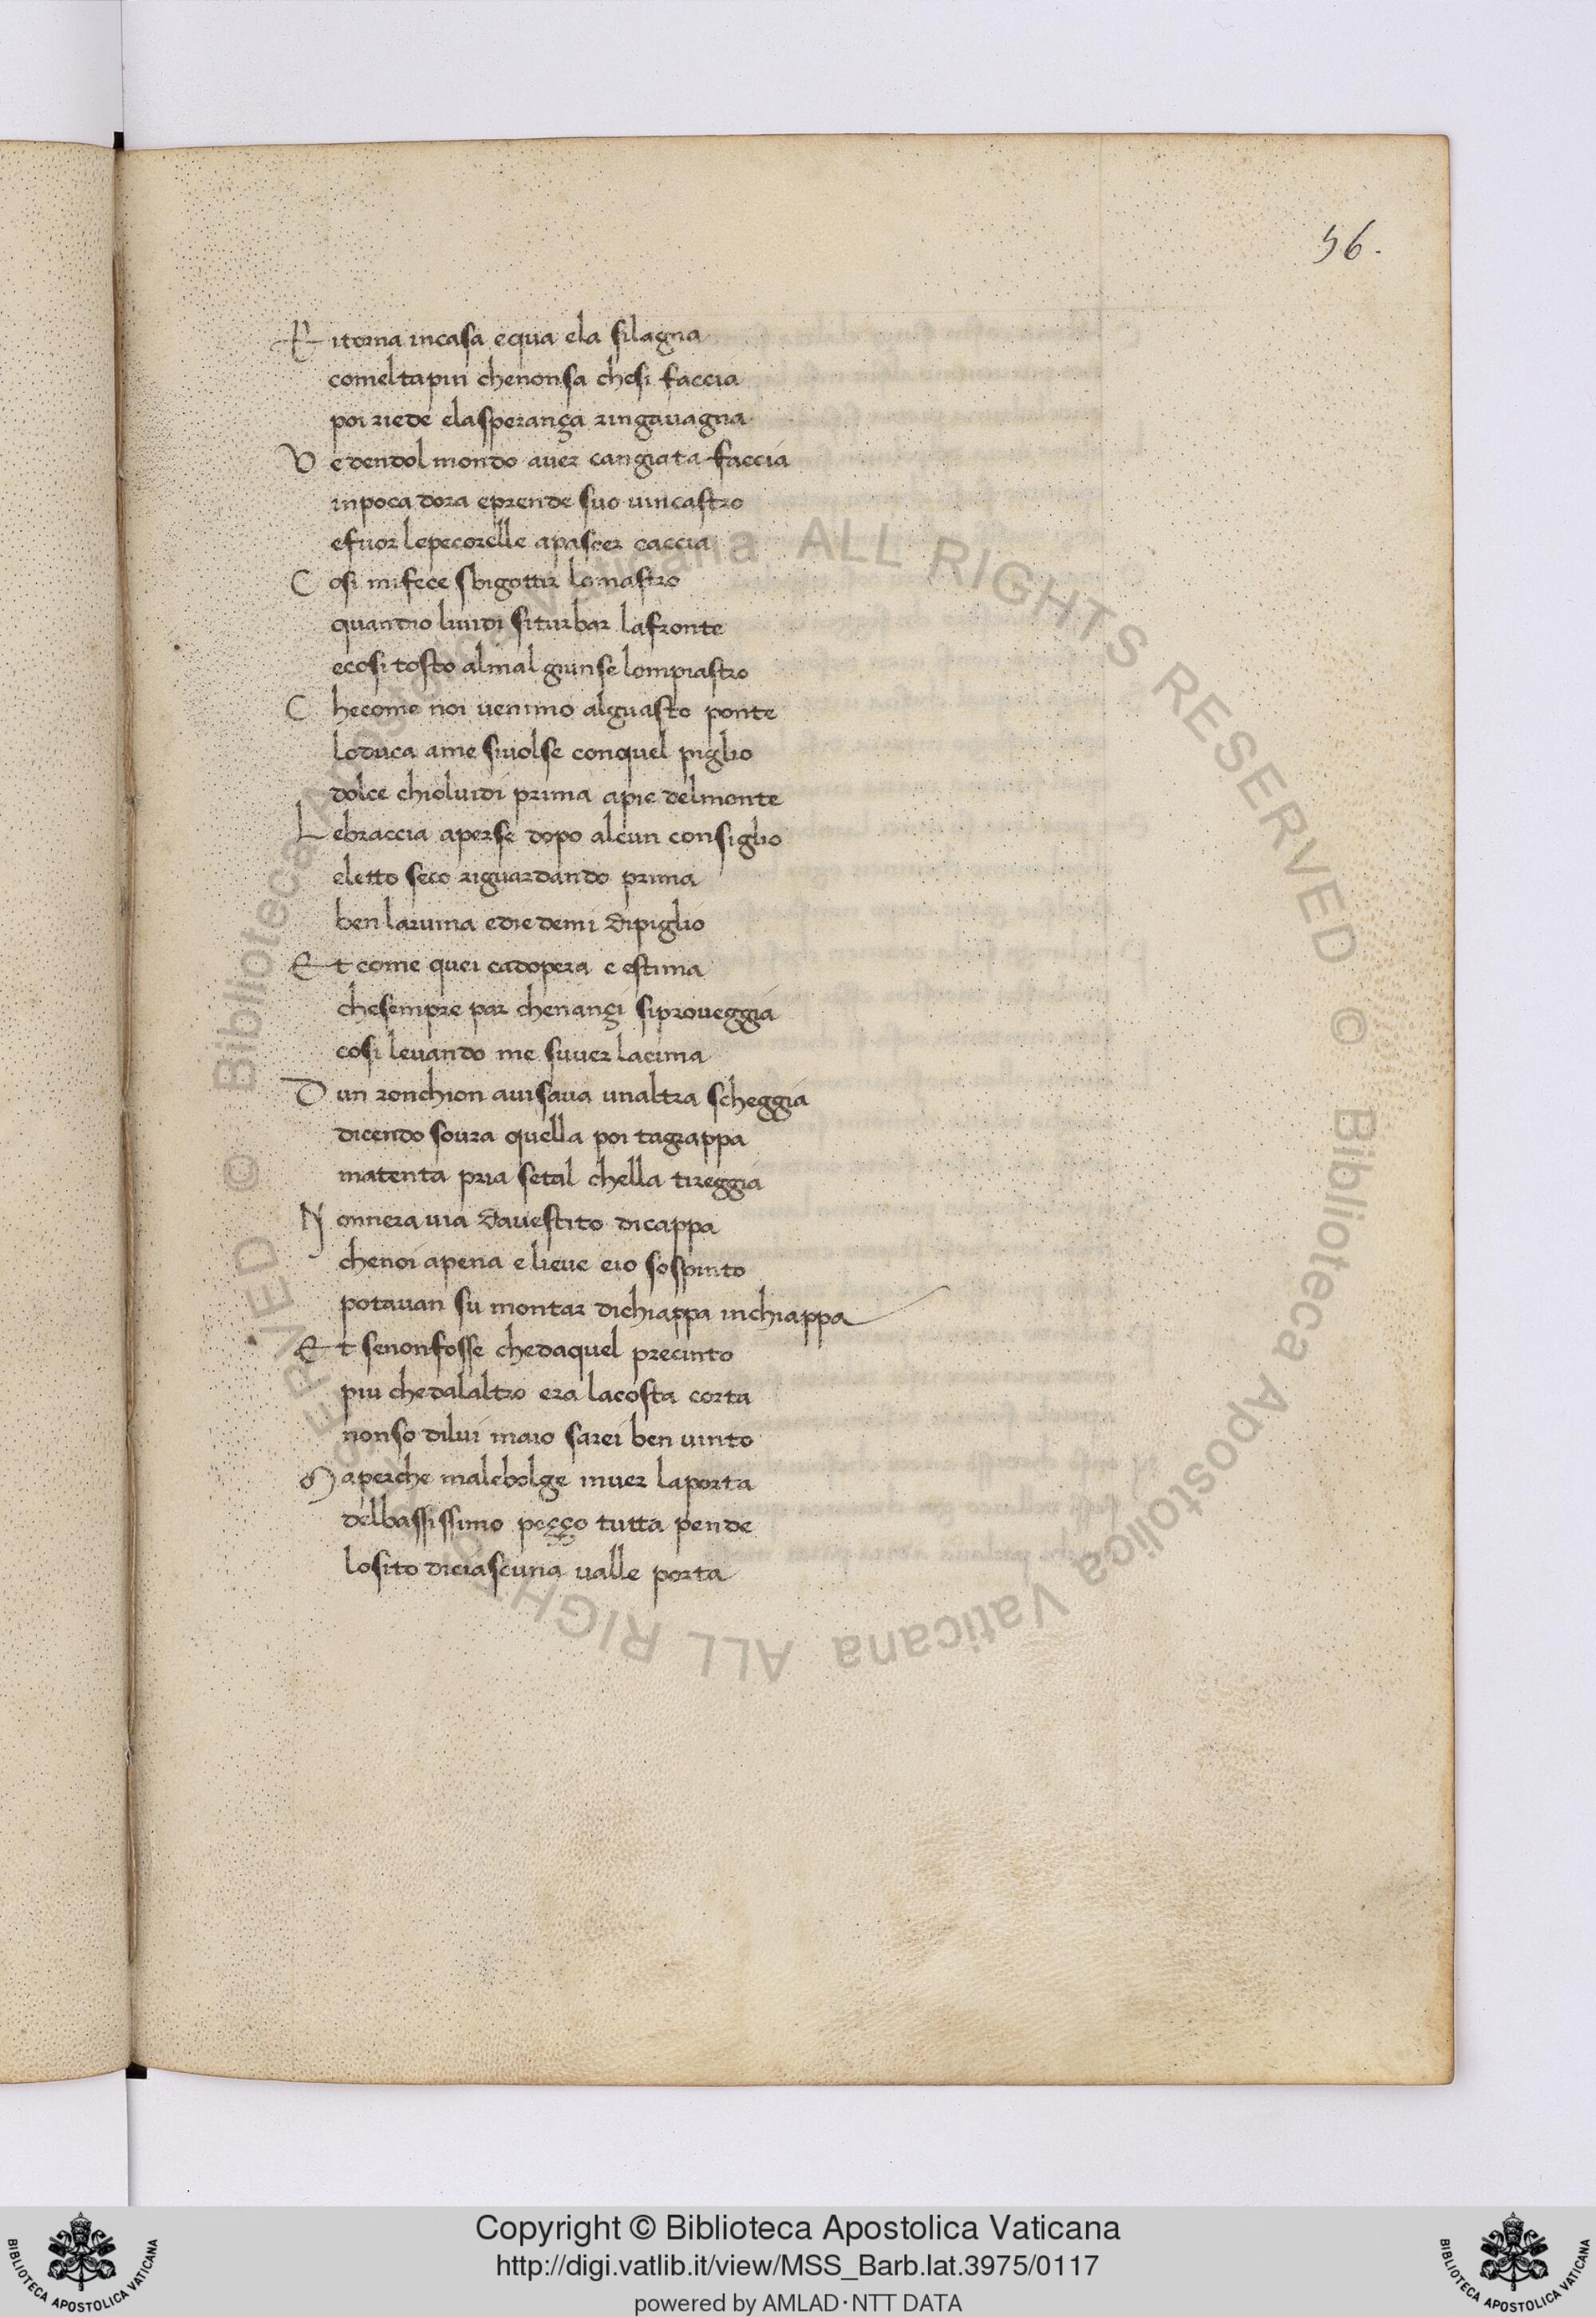 56.
Ritorna incasa equa ela silagna
comeltapin chenonsa chesi faccia
poi riede elasperança ringavagna
Vedendol mondo aver cangiata faccia
inpoca dora eprende suo vincastro
efuor lepecorelle apascer caccia
Cosi mifece sbigottir lomastro
quandio lividi siturbar lafronte
ecosi tosto almal giunse lompiastro
Checome noi venimo alguasto ponte
loduca ame sivolse conquel piglio
dolce chioluidi prima apie delmonte
Lebraccia aperse dopo alcun consiglio
eletto seco riguardando prima
ben laruina ediedemi dipiglio
Et come quei cadopera e estima
chesempre par chenançi siproveggia
cosi levando me suver lacima
Dun ronchion avisava unaltra scheggia
dicendo sovra quella poi tagrappa
matenta pria setal chella tireggia
Nonnera via davestito dicappa
chenoi apena e lieve eio sospinto
potavan su montar dichiappa inchiappa
Et senonfosse chedaquel precinto
piu chedalaltro era lacosta corta
nonso dilui maio sarei ben vinto
Maperche malebolge inver laporta
delbassissimo poço tutta pende
losito diciascuna valle porta
© Biblioteca Apostolica Vaticana ALL RIGHTS RESERVED © Biblioteca Apostolica Vaticana ALL RIGHTS RESERVED
Copyright © Biblioteca Apostolica Vaticana
http://digi.vatlib.it/view/MSS_Barb.lat.3975/0117
powered by AMLAD·NTT DATA
BIBLIOTECA APOSTOLICA VATICANA
BIBLIOTECA APOSTOLICA VATICANA